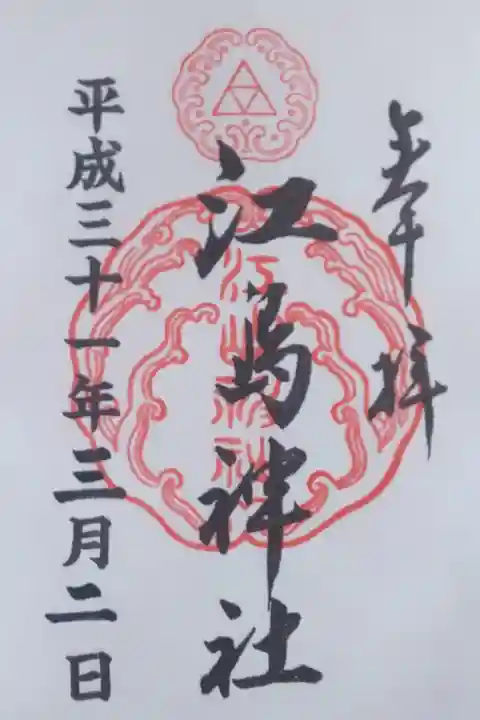 奉拝
江島神社
江島神社
平成三十一年三月二日